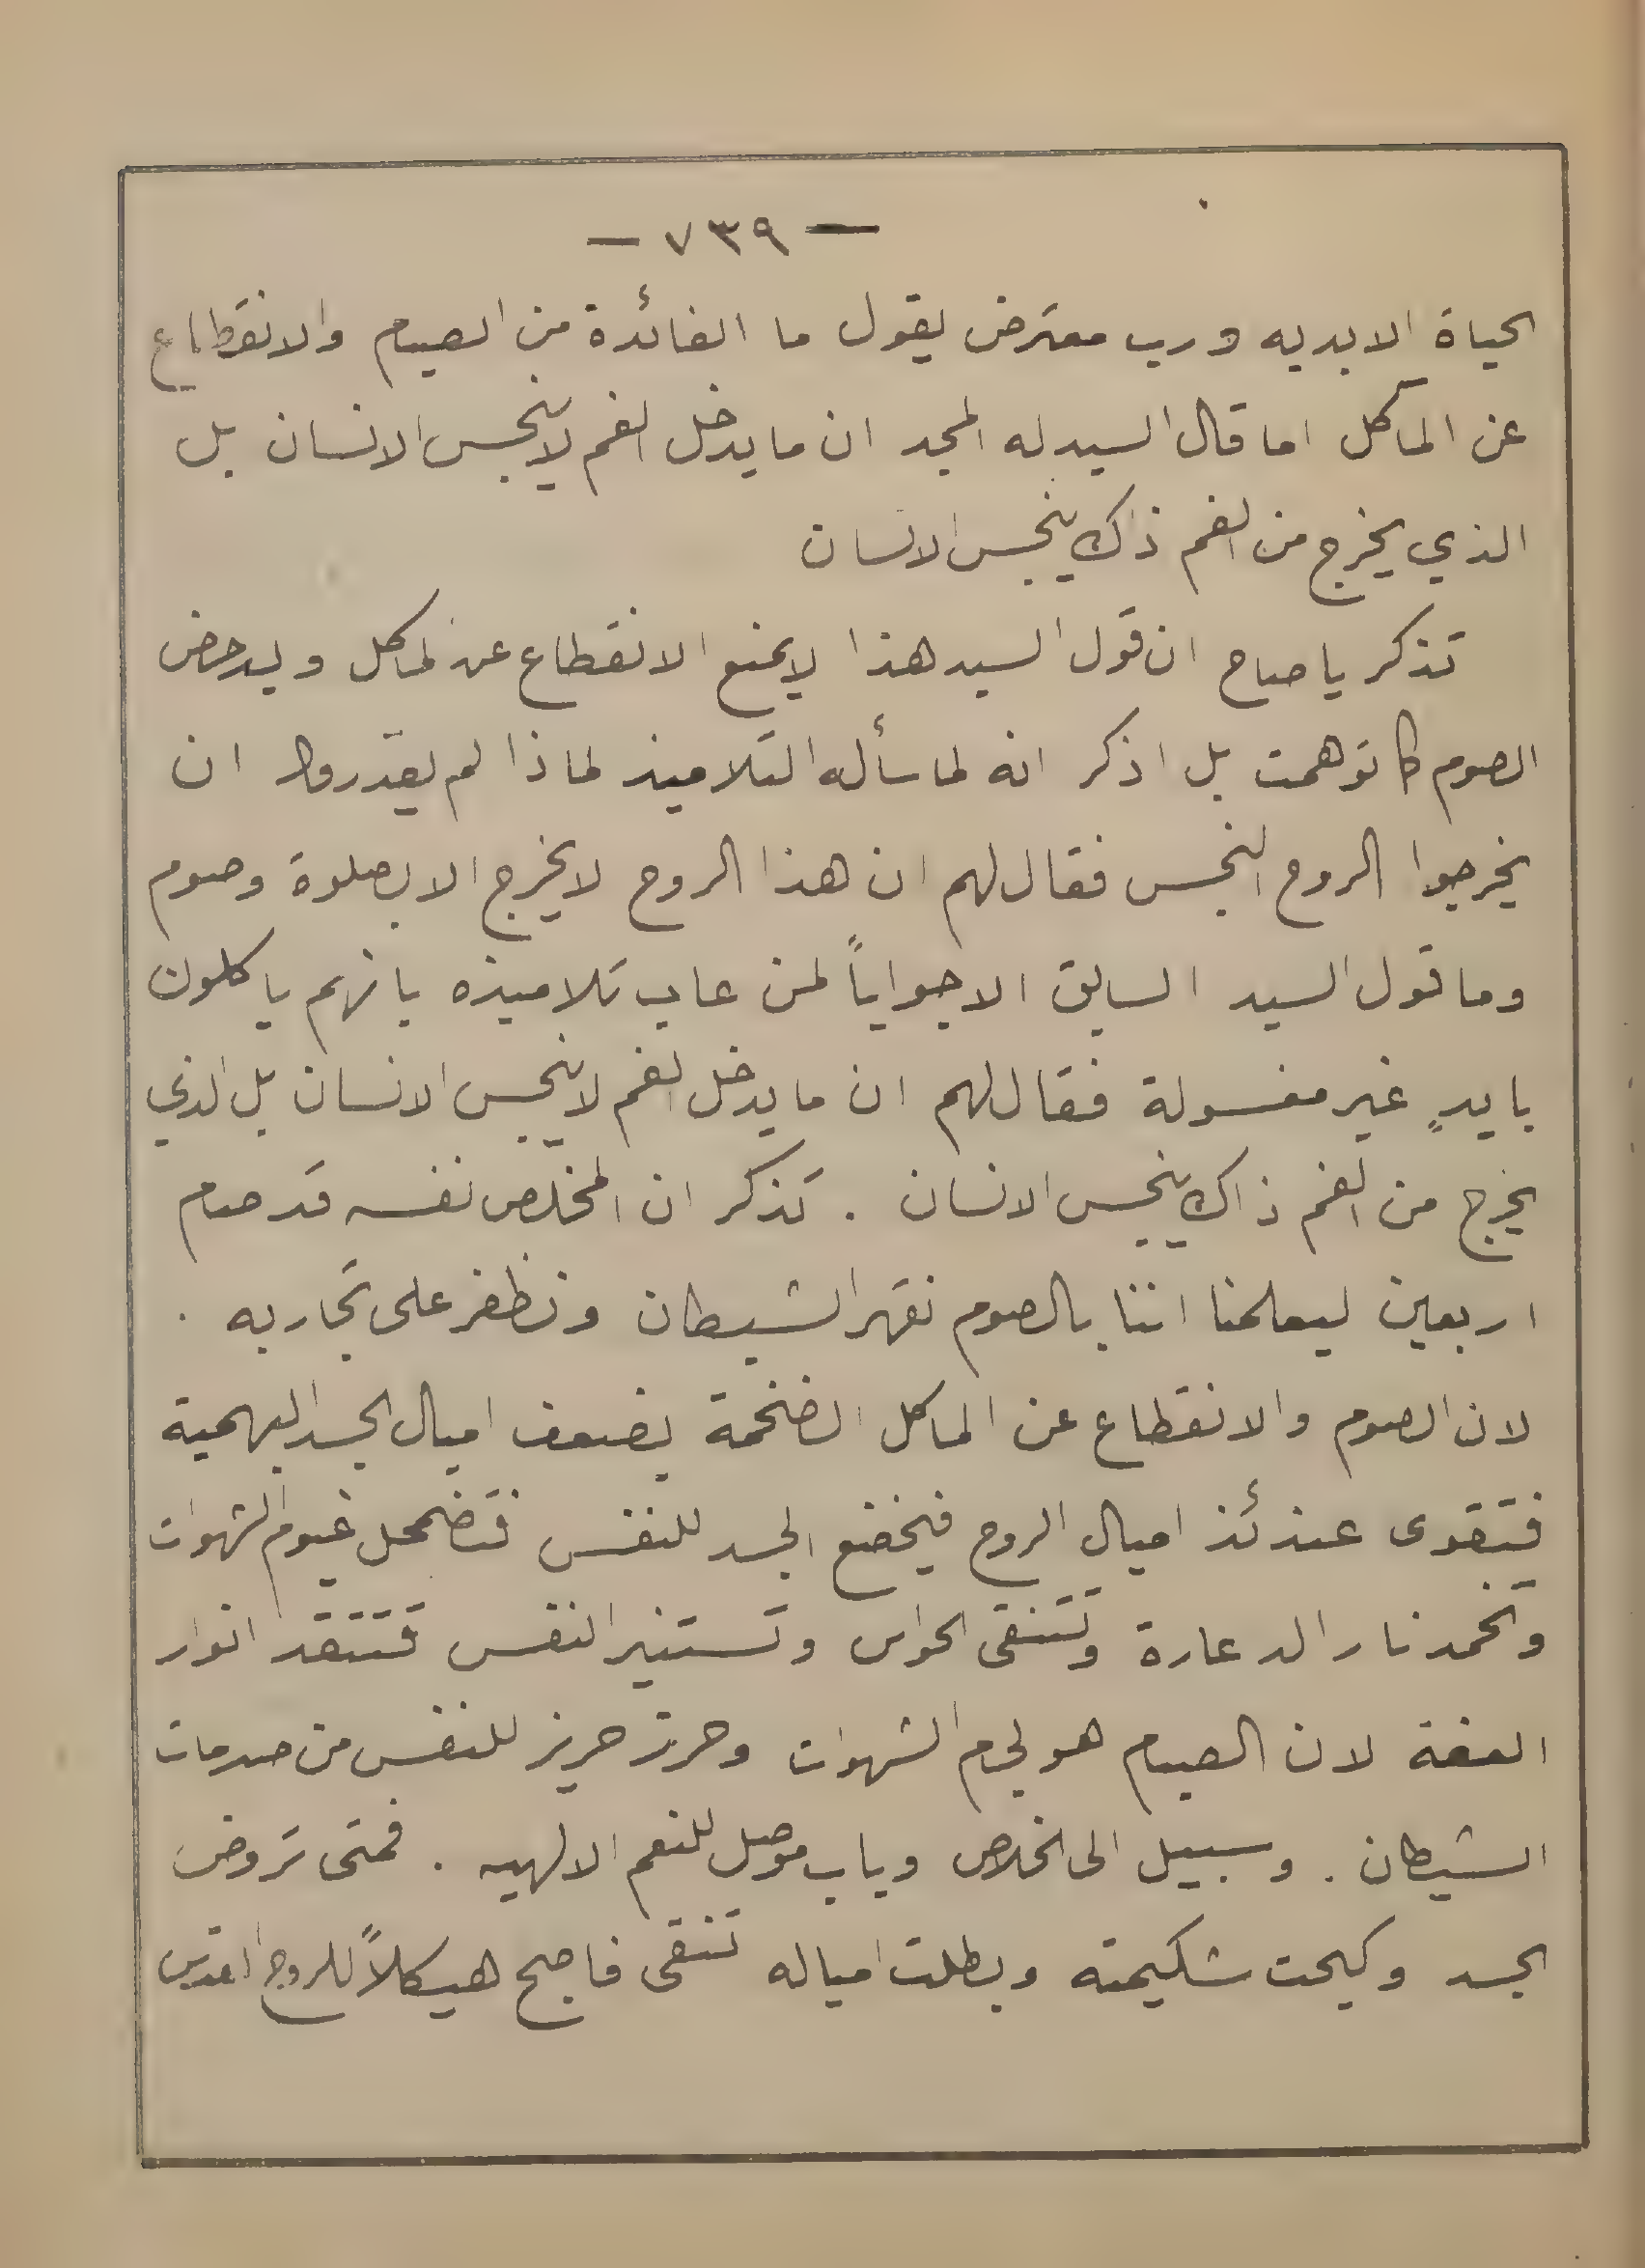 — ٧٣٩ —
الحياة الابديه ورب معترض يقول ما الفائدة من الصيام والانقطاع
عن المآكل اما قال السيد له المجد ان ما يدخل الفم لا ينجس الانسان بل
الذي يخرج من الفم ذاك ينجس الانسان
تذكر يا صاح ان قول السيد هذا لا يمنع الانقطاع عن المآكل ويدحض
الصوم كما توهمت بل اذكر انه لما سأله التلاميذ لماذا لم يقدروا ان
يخرجوا الروح النجس فقال لهم ان هذا الروح لا يخرج الا بصلوة وصوم
وما قول السيد السابق الا جواباً لمن عاب تلاميذه بانهم ياكلون
بايدٍ غير مغسولة فقال لهم ان ما يدخل الفم لا ينجس الانسان بل الذي
يخرج من الفم ذاك ينجس الانسان . تذكر ان المخلص نفسه قد صام
اربعين ليعلمنا اننا بالصوم نقهر الشيطان ونظفر على تجاربه .
لان الصوم والانقطاع عن المآكل الضخمة يضعف اميال الجسد البهمية
فتقوى عندئذ اميال الروح فيخضع الجسد للنفس فتضمحل غيوم الشهوات
وتخمد نار الدعارة وتتنقى الحواس وتستنير النفس فتتقد انوار
العفة لان الصيام هو لجام الشهوات وحرز حريز للنفس من صدمات
الشيطان . وسبيل الى الخلاص وباب موصل للنعم الالهيه . فمتى تروض
الجسد وكبحت شكيمته وبطلت امياله تنقى فاصبح هيكلاً للروح القدس